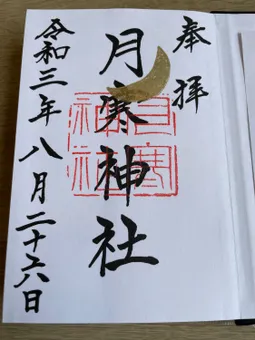 奉拝
月寒神社
令和三年八月二十六日
月寒
神社